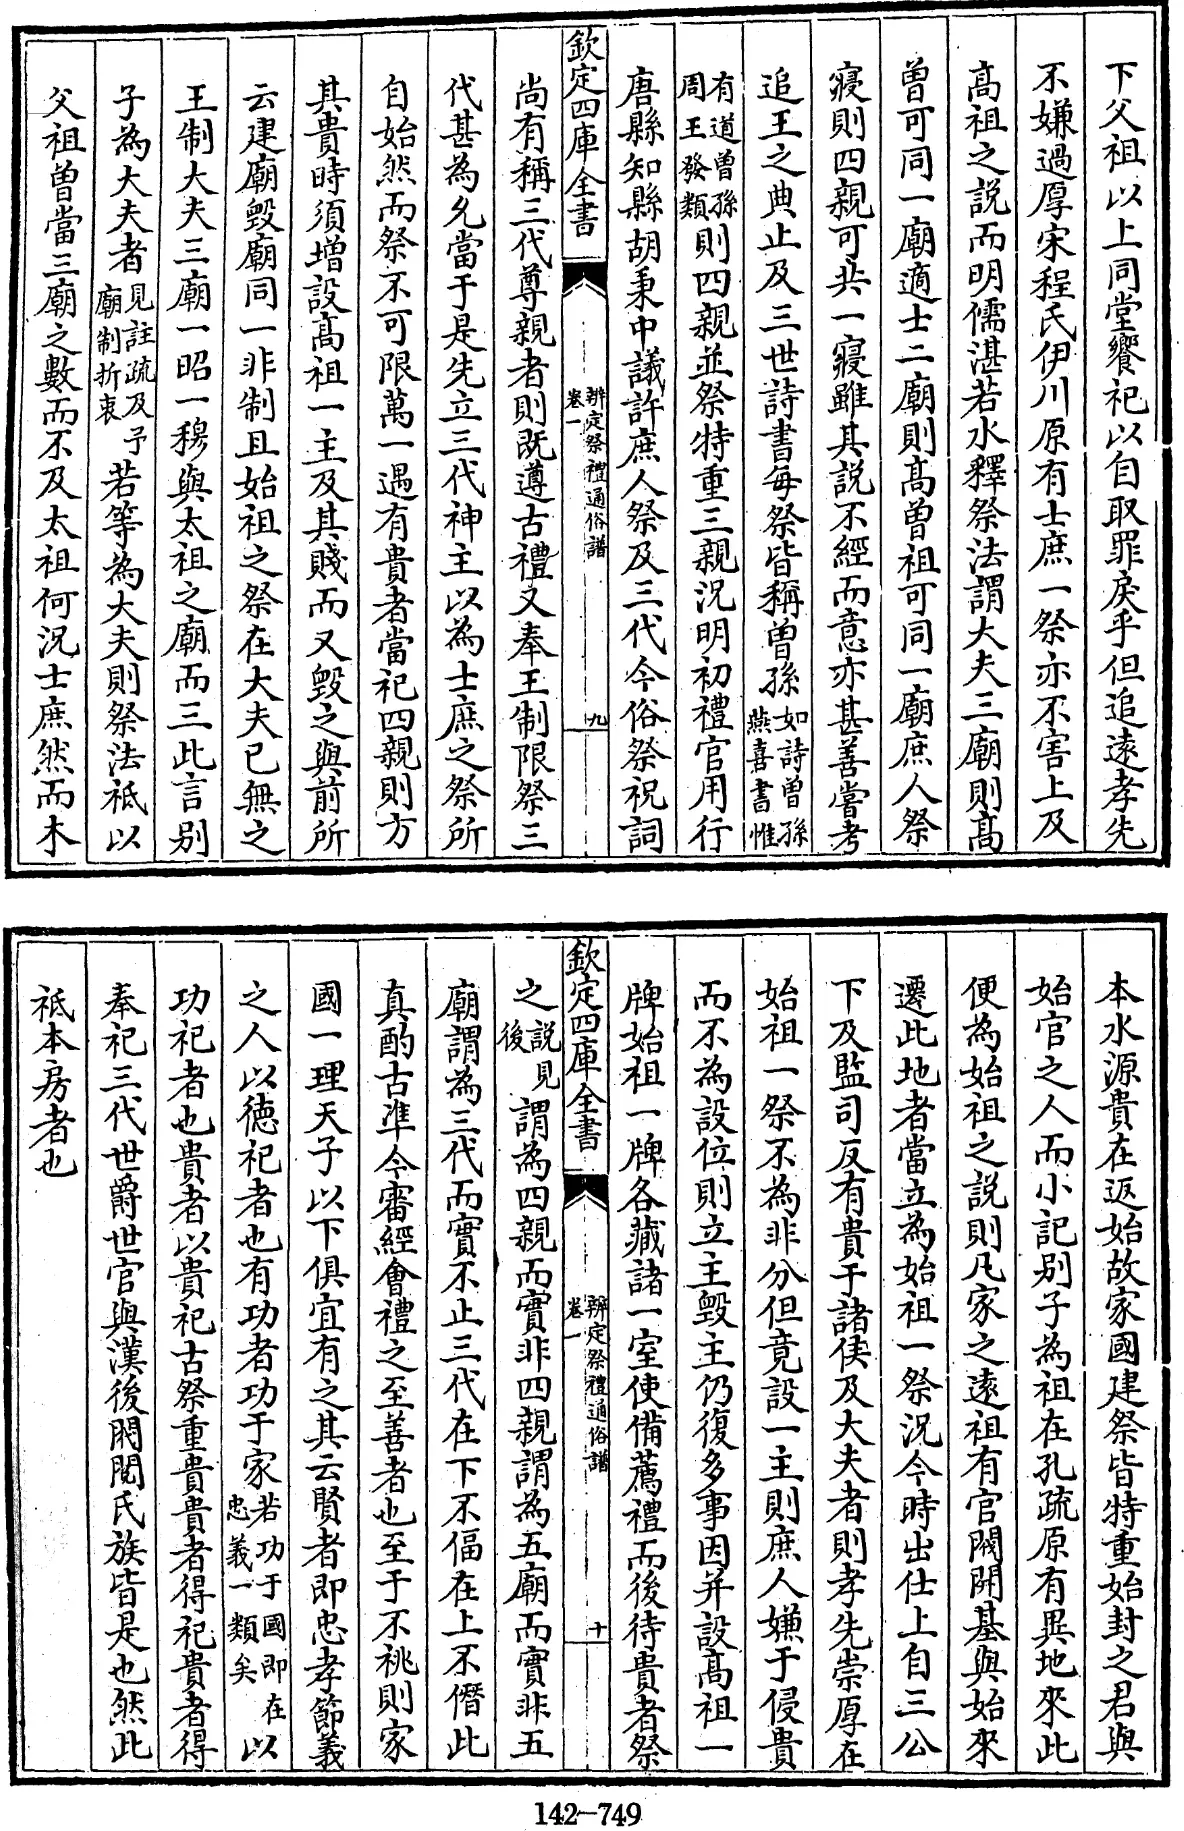 下父祖以上同堂饗祀以自取罪戾乎但追遠孝先
不嫌過厚宋程氏伊川原有士庶一祭亦不害上及
高祖之説而明儒湛若水釋祭法謂大夫三廟則髙
曾可同一廟適士二廟則髙曾祖可同一廟庶人祭
寢則四親可共一寢雖其説不經而意亦甚善嘗考
追王之典止及三世詩書每祭皆稱曾孫如詩曾孫燕喜書惟
有道曾孫周王發類則四親並祭特重三親況明初禮官用行
唐縣知縣胡秉中議許庶人祭及三代今俗祭祝詞
欽定四庫全書 辨定祭禮通俗譜卷一 九
尚有稱三代尊親者則既遵古禮又奉王制限祭三
代甚為允當于是先立三代神主以為士庶之祭所
自始然而祭不可限萬一遇有貴者當祀四親則方
其貴時須增設髙祖一主及其賤而又毀之與前所
云建廟毀廟同一非制且始祖之祭在大夫已無之
王制大夫三廟一昭一穆與太祖之廟而三此言别
子為大夫者見註疏及予廟制折衷若等為大夫則祭法祗以
父祖曾當三廟之數而不及太祖何況士庶然而木
本水源貴在返始故家國建祭皆特重始封之君與
始官之人而小記别子為祖在孔疏原有異地來此
便為始祖之説則凡家之遠祖有官閥開基與始來
遷此地者當立為始祖一祭況今時出仕上自三公
下及監司反有貴于諸侯及大夫者則孝先崇厚在
始祖一祭不為非分但竟設一主則庶人嫌于侵貴
而不為設位則立主毀主仍復多事因并設髙祖一
牌始祖一牌各藏諸一室使備薦禮而後待貴者祭
欽定四庫全書 辨定祭禮通俗譜卷一 十
之説見後謂為四親而實非四親謂為五廟而實非五
廟謂為三代而實不止三代在下不偪在上不僭此
真酌古準今審經會禮之至善者也至于不祧則家
國一理天子以下俱宜有之其云賢者即忠孝節義
之人以德祀者也有功者功于家若功于國即在忠義一類矣以
功祀者也貴者以貴祀古祭重貴貴者得祀貴者得
奉祀三代世爵世官與漢後閥閲氏族皆是也然此
祗本房者也
142-749